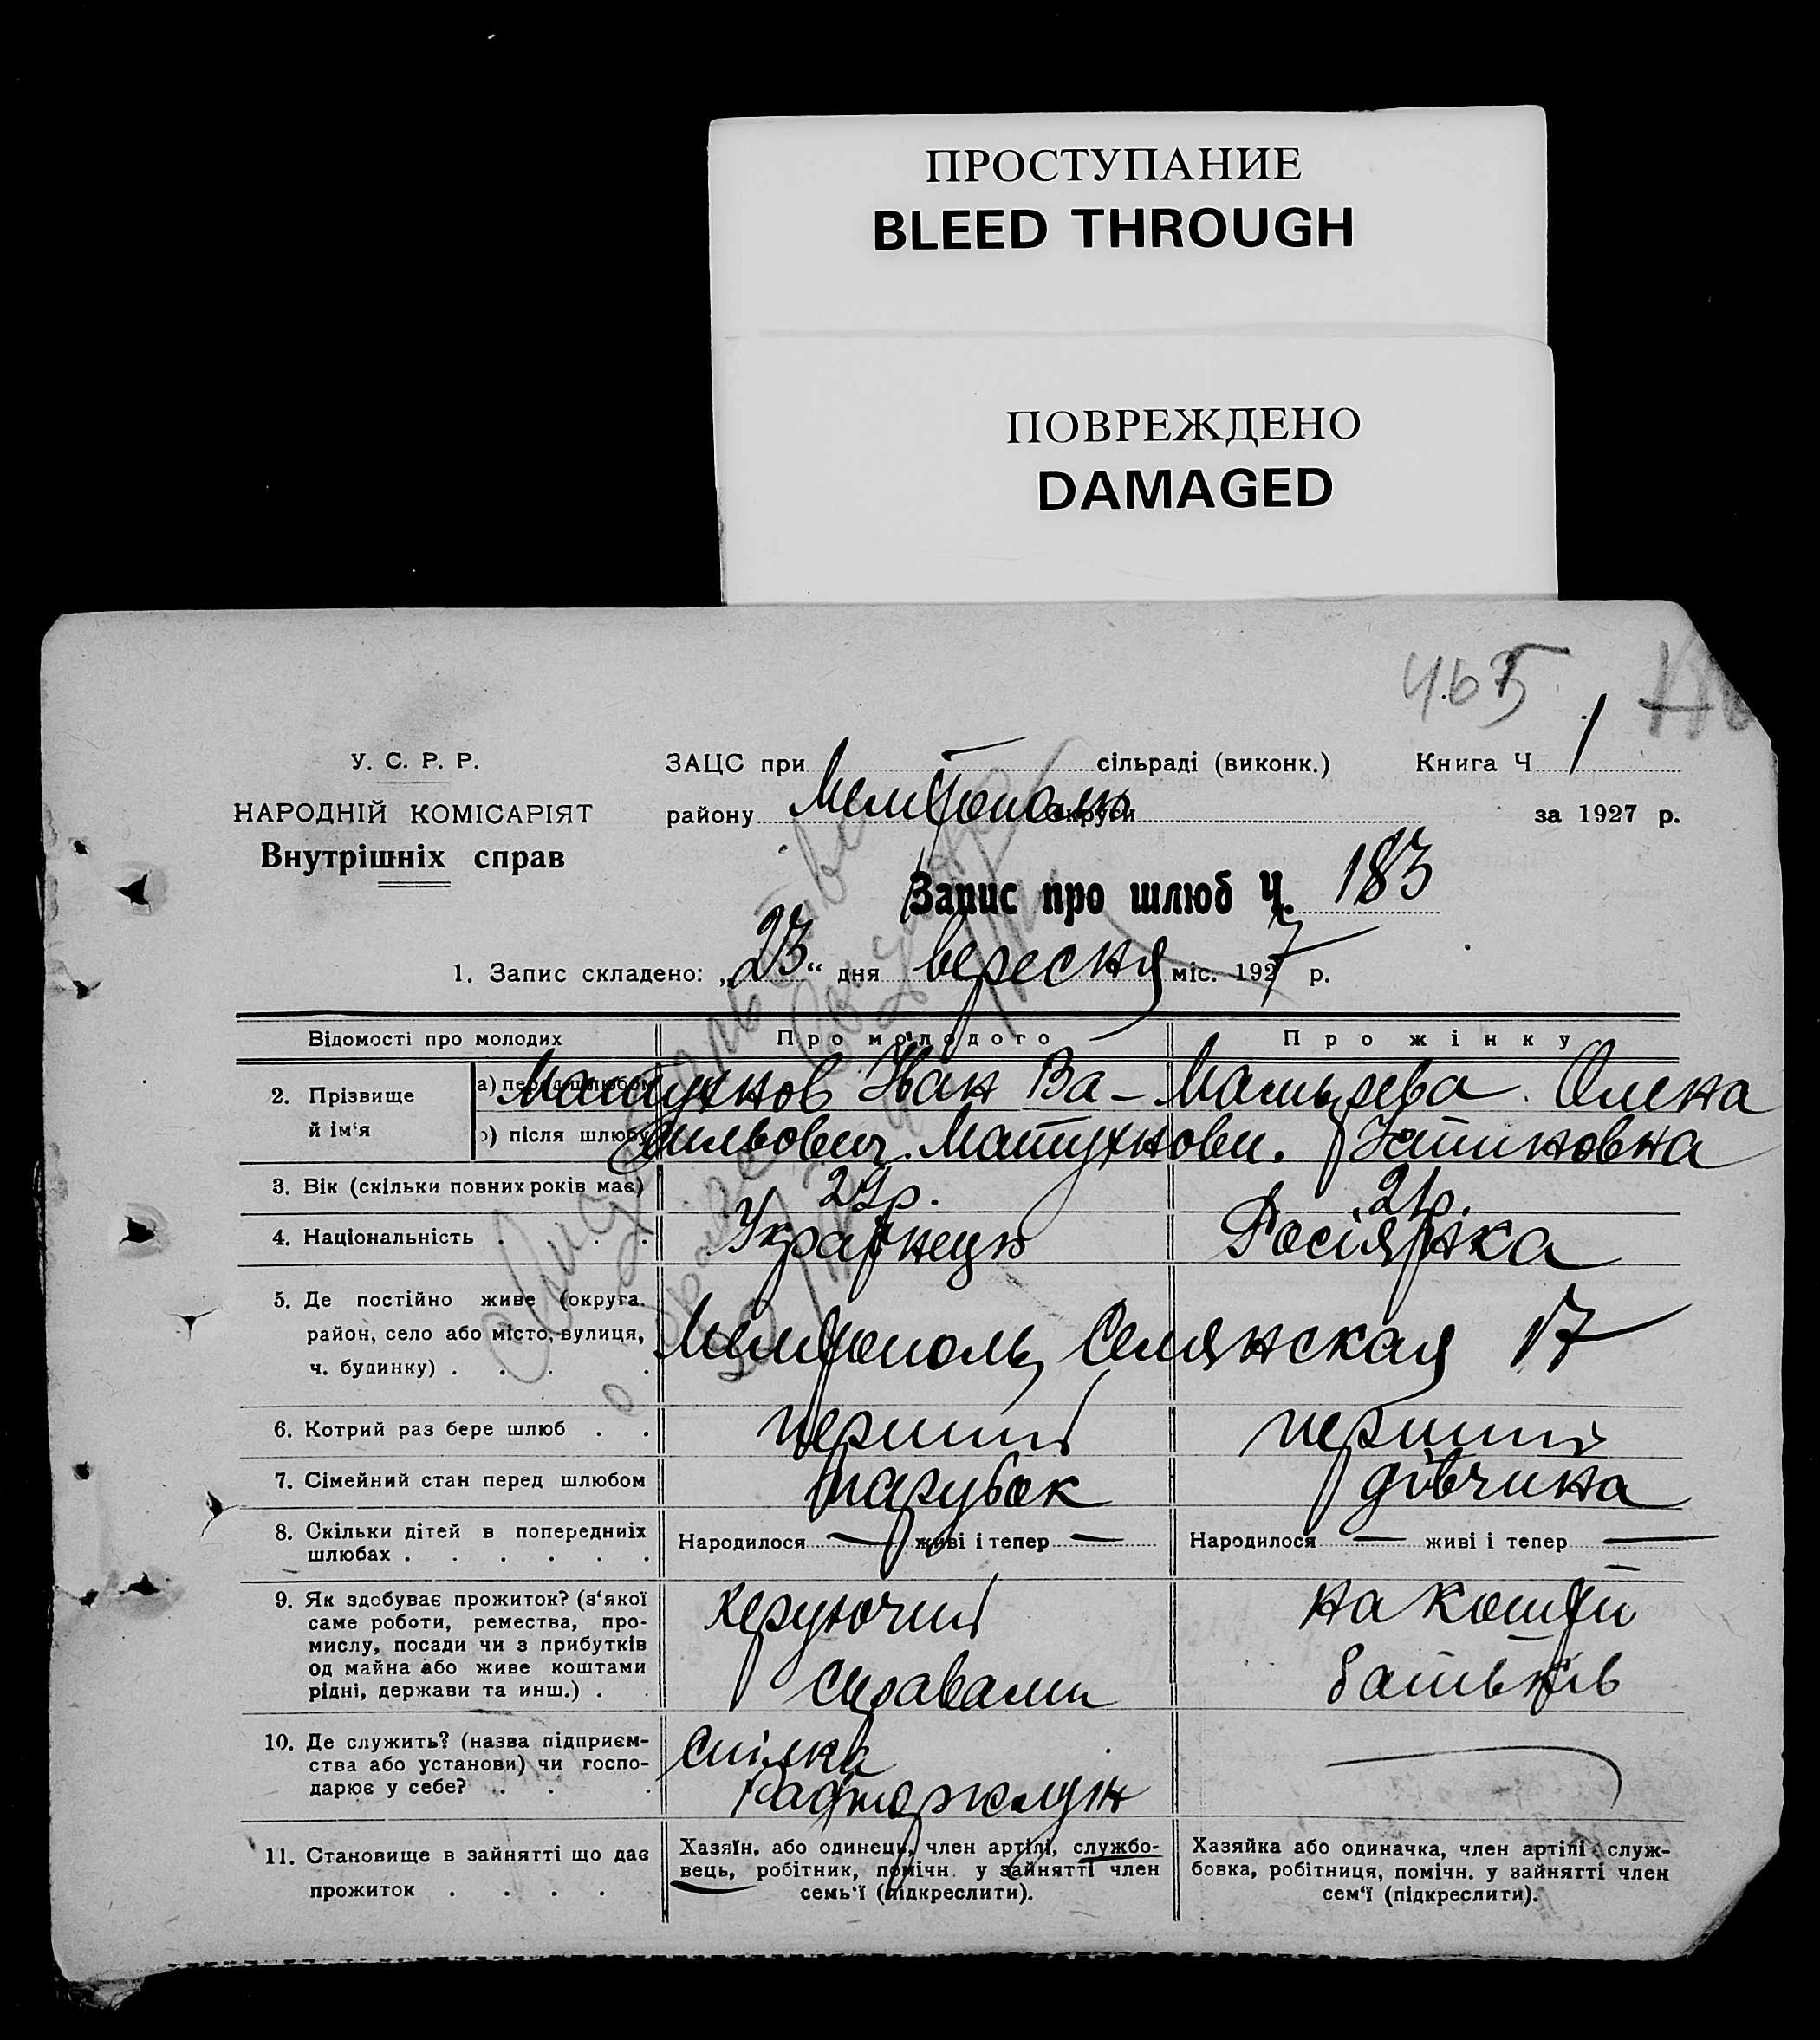 ПРОСТУПАНИЕ
BLEED THROUGH
ПОВРЕЖДЕНО
DAMAGED
465
У. С. Р. Р.
НАРОДНІЙ КОМІСАРІЯТ
Внутрішніх справ
ЗАЦС при сільраді (виконк.) Книга Ч 1
району Мелітополь округи за 1927 р.
Запис про шлюб Ч. 183
1. Запис складено: „23“ дня вересня міс. 1927 р.
Відомості про молодих Про молодого Про жінку
2. Прізвище й ім‘я
а) перед шлюбом Матухнов Іван Ва- Мальцева Олена
б) після шлюбу сильович. Матухнови.
3. Вік (скільки повних років має) 21р.
4. Національність Українець Росіянка
5. Де постійно живе (округа,
район, село або місто, вулиця,
ч. будинку) Мелітополь, Селянская 17
6. Котрий раз бере шлюб перший перший
7. Сімейний стан перед шлюбом парубок дівчина
8. Скільки дітей в попередниіх
шлюбах Народилося — живі і тепер — Народилося — живі і тепер —
9. Як здобуває прожиток? (з‘якої
саме роботи, ремества, про-
мислу, посади чи з прибутків
од майна або живе коштами
рідні, держави та инш.)
керуючий
справами
на кошти
батьків
10. Де служить? (назва підприєм-
ства або установи) чи госпо-
дарює у себе?
Спілка
11. Становище в зайнятті що дає
прожиток
Хазяїн, або одинець, член артілі, службо-
вець, робітник, помічн. у зайнятті член
семь‘ї (підкреслити).
Хазяйка або одиначка, член артілі служ-
бовка, робітниця, помічн. у зайнятті член
сем‘ї (підкреслити).